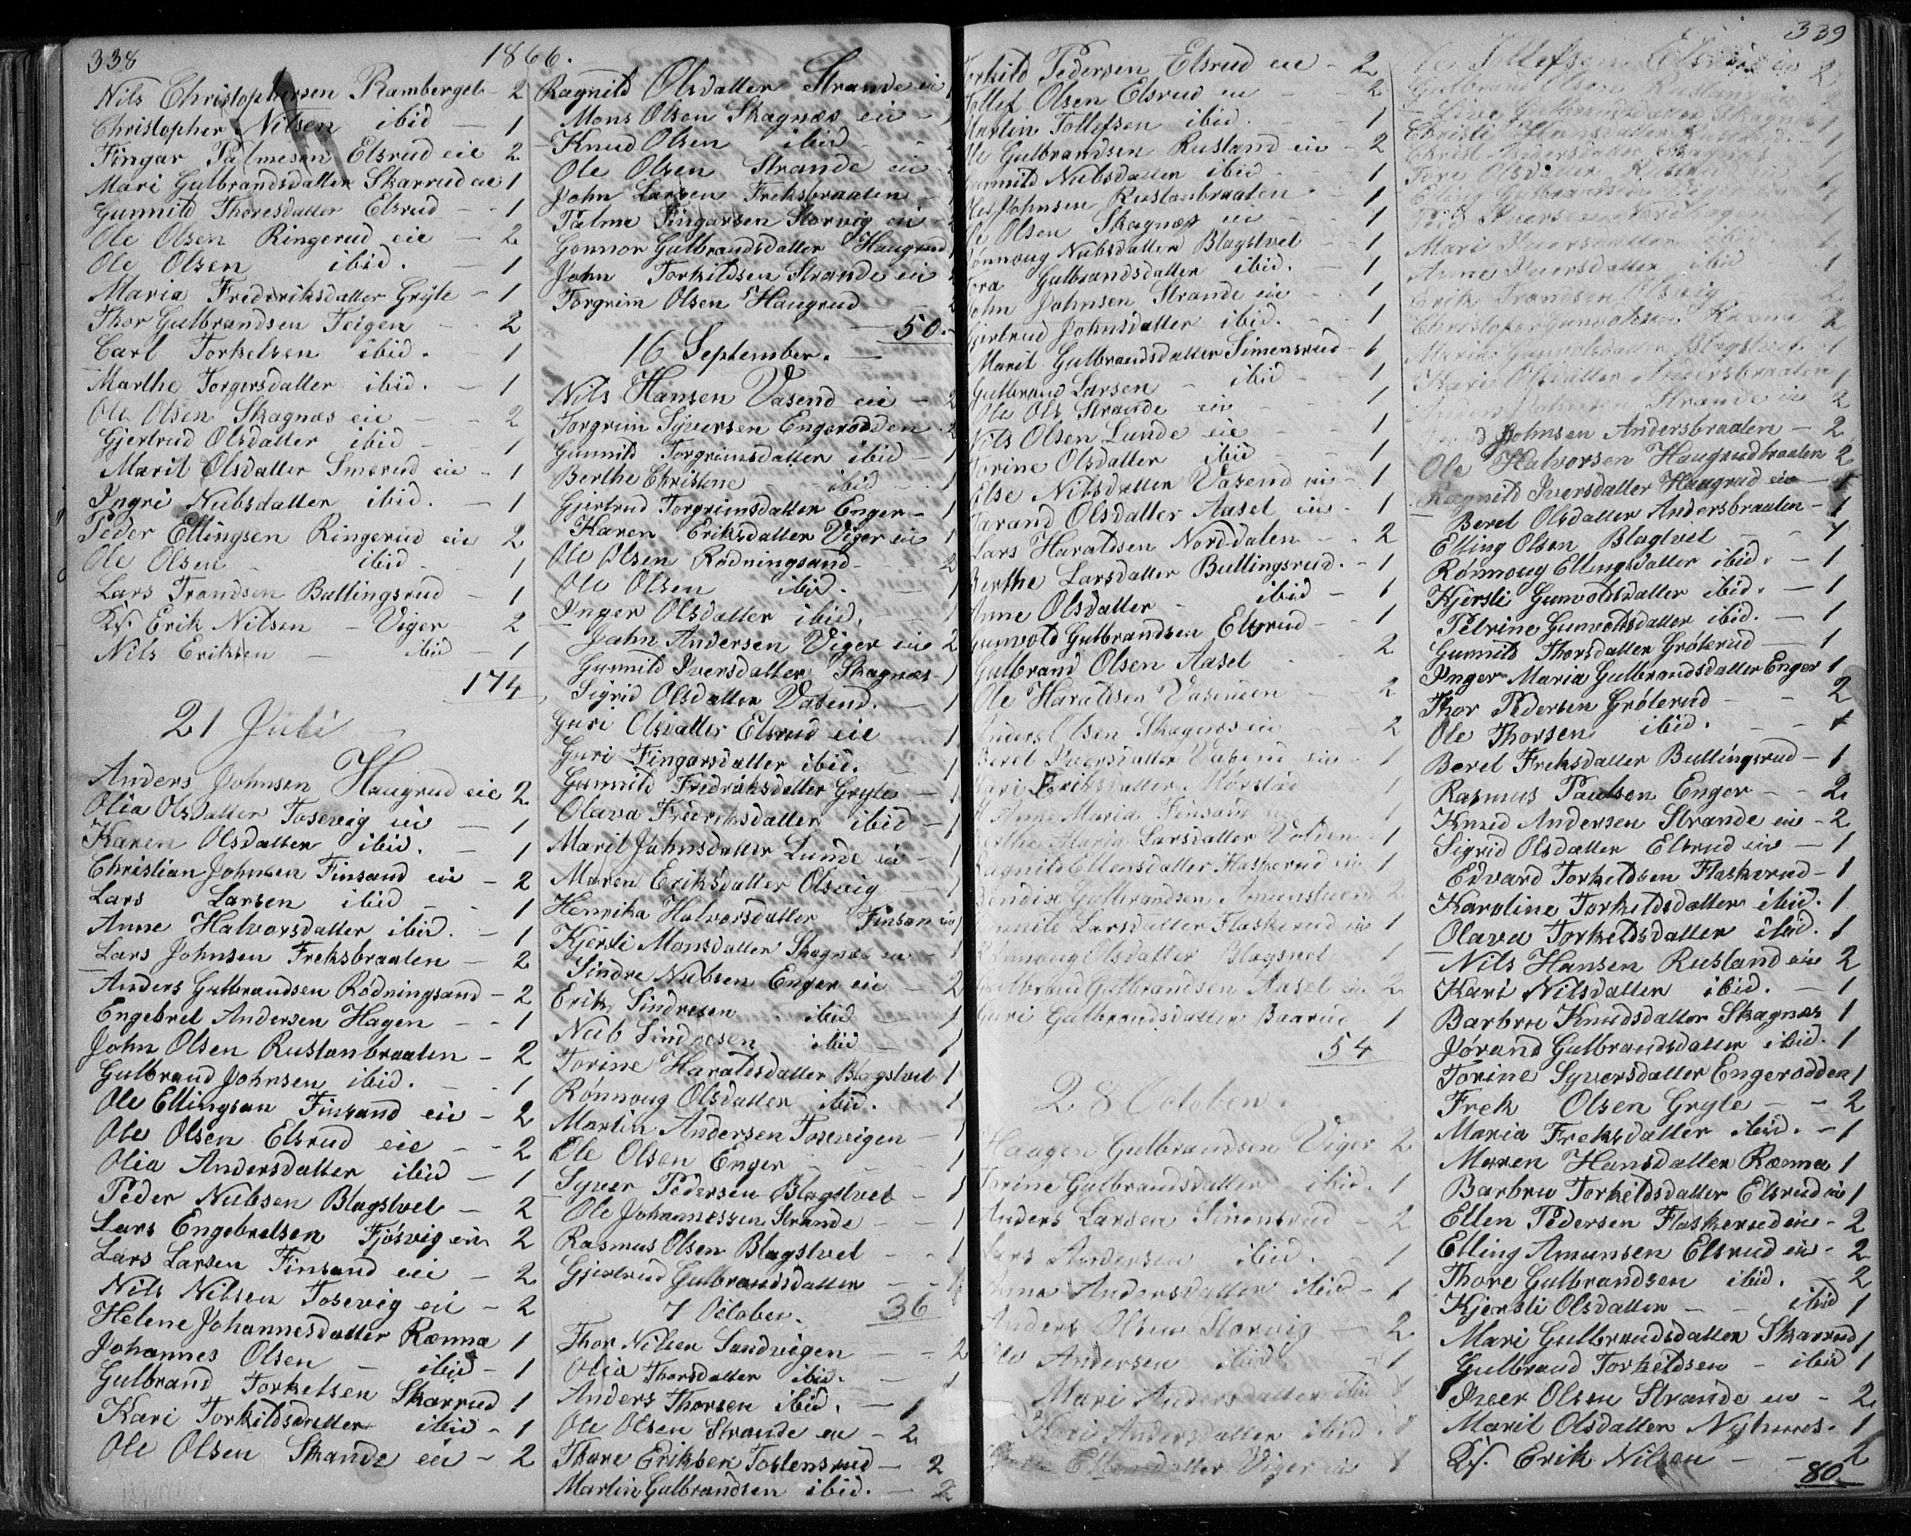 338
1866.
Nils Christophersen Ramberget - 2
Christopher Nilsen ibid - 1
Fingar Palmesen Elsrud eie 2
Mari Gulbrandsdatter Skarrud eie 1
Gunnild Thoresdatter Elsrud - 1
Ole Olsen Ringerud eie - 2
Ole Olsen ibid. - 1
Maria Fredriksdatter Gryte - 1
Thor Gulbrandsen Teigen - 2
Carl Torkelsen ibid. 1
Marthe Torgersdatter ibid. - 1
Ole Olsen Skagnæs eie - 2
Gjertrud Olsdatter ibid - 1
Marit Olsdatter Smerud eie - 1
Ingri Nubsdatter ibid. - 1
Peder Ellingsen Ringerud eie 2
Ole Olsen - ibid - 1
Lars Trondsen Bullingsrud - 1
Ks. Erik Nilsen - Viger - 2
Nils Eriksen - ibid - 1
174
21 Juli
Anders Johnsen Haugrud eie 2
Olia Olsdatter Tosevig eie - 1
Karen Olsdatter ibid. - 1
Christian Johnsen Finsand eie - 2
Lars Larsen ibid - 1
Anne Halvorsdatter ibid. - 1
Lars Johnsen Freksbraaten - 2
Anders Gulbrandsen Rodningsand - 2
Engebret Andersen Hagen - - 1
John Olsen Ruslanbraaten - 2
Gulbrand Johnsen ibid. - 1
Ole Ellingsen Finsand eie - 2
Ole Olsen Elsrud eie - - 2
Olia Andersdatter ibid - 1
Peder Nubsen Blagstvet - 2
Lars Engebretsen Fjösvig eie 2
Lars Larsen Finsand eie - 2
Nils Nilsen Tosevig eie - 2
Helene Johannesdatter Rænna 1
Johannes Olsen - ibid - 1
Gulbrand Torkelsen Skarrud 1
Kari Torkildsdatter ibid - 1
Ole Olsen Strande eie - 2
Ragnild Olsdatter Strande eie 1
Mons Olsen Skagnæs eie - 1
Knud Olsen ibid - -
Ole Olsen Strande eie
John Larsen Freksbraaten -
Palme Fingarsen Storvig eie -
Gonnor Gulbrandsdatter Haugrud
John Torkildsen Strande eie
Torgrim Olsen Haugrud
50.
16 September.
Nils Hansen Vasend eie - 2
Torgrim Syversen Engerodden 2
Gunnild Torgrimsdatter ibid - 1
Berthe Christine - ibid - 1
Gjertrud Torgrimsdatter Enger - 1
Karen Eriksdatter Viger eie 1
Ole Olsen Rodningsand - 2
Ole Olsen ibid. - 1
Inger Olsdatter ibid. - 1
John Andersen Viger eie 2
Gunnild Iversdatter Skagnæs - 1
Sigrid Olsdatter Vasend. - 1
Guri Olsdatter Elsrud eie 1
Guri Fingarsdatter ibid. - 1
Gunnild Fredriksdatter Gryte - 1
Olava Fredriksdatter ibid - 1
Marit Johnsdatter Lunde eie - 1
Maren Eriksdatter Olsvig - 1
Henrika Halvorsdatter Finsan eie 1
Kjersti Monsdatter Skagnæs eie - 1
Sindre Nubsen Enger eie - 2
Erik Sindresen - ibid - 1
Nub Sindresen ibid - 1
Torine Haraldsdatter Blagstvet 1
Rønnoug Olsdatter ibid. 1
Martin Andersen Tosevigen - 1
Ole Olsen Enger - - 1
Syver Pedersen Blagstvet - 1
Ole Johannessen Strande - - 1
Rasmus Olsen Blagstvet - - 1
Gjertrud Gulbrandsdatter - - 1
7 October. 36
Thor Nilsen Sandvigen - - 2
Olia Thorsdatter ibid. - 1
Anders Thorsen ibid. - 1
Ole Olsen Strande eie - 2
Thore Eriksen Tostensrud - 2
Martin Gulbrandsen ibid. - 2
339
Torkild Pedersen Elsrud eie - 2
Tollef Olsen Elsrud eie - 2
Martin Tollefsen ibid. - 1
Ole Gulbrandsen Rusland eie - 2
Gunnild Nubsdatter ibid. - 1
Ole Johnsen Ruslanbraaten - 1
Ole Olsen Skagnæs eie - 1
Rønnoug Nubsdatter Blagstvet - 1
Tora Gulbrandsdatter ibid. - 1
John Johnsen Strande eie - 1
Gjertrud Johnsdatter ibid. - 1
Marit Gulbrandsdatter Simensrud - 1
Gulbrand Larsen - ibid - 1
Ole Ols Strande eie - - 1
Nils Olsen Lunde eie - - 1
Torine Olsdatter ibid - - 1
Else Nilsdatter Vasend eie - 1
Jørand Olsdatter Aasel eie - 1
Lars Haraldsen Norddalen - - 2
Berthe Larsdatter Bullingsrud. - 1
Anne Olsdatter - ibid - 1
Gunvold Gulbrandsen Elsrud - - 1
Gulbrand Olsen Aasel - 2
Ole Haraldsen Vasenden - 2
Anders Olsen Skagnæs eie - 2
Beret Iversdatter Vasend eie - 1
Kari Eriksdatter Morstad - 1
Anne Maria Finsand eie 1
Berthe Maria Larsdatter Volden - 1
Ragnild Ellensdatter Flaskerud eie 1
Bendix Gulbrandsen 2
Gunnild Larsdatter Flaskerud eie 1
Rønnoug Olsdatter Blagsvet 1
Gulbrand Gulbrandsen Aasel eie 2
Guri Gulbrandsdatter Baarud 1
54
28 October.
Haagen Gulbrandsen Viger 2
Torine Gulbrandsdatter ibid. 1
Anders Larsen Simensrud - 2
Lars Andersen ibid. 1
Anna Andersdatter ibid - 1
Anders Olsen Storvig - 2
Ole Andersen ibid. - 1
Mari Andersdatter ibid 1
Kari Andersdatter ibid. 1
Ellensdatter Viger eie 1
Ole Tollefsen Elsrud eie 2
Gulbrand Olsen Rusland eie 2
Live Gulbrandsdatter Skagnæs 1
Christi Hansdatter 1
Christi Andersdatter Skagnæs
Tore Olsdatter
Peder Iversen Nordhagen
Mari Iversdatter ibid 1
Anne Iversdatter ibid 1
Erik Trondsen Olsvig 2
Christofer Gunvoldsen Rænna 2
Marthe Gunvoldsdatter Blagstvet 1
Kari Olsdatter Andersbraaten 1
Johnsen Strande eie 2
Johnsen Andersbraaten - 2
Ole Halvorsen Haugrudbraaten 2
Ragnild Iversdatter Haugrud eie - 1
Beret Olsdatter Andersbraaten - 1
Elling Olsen Blagtvet - - 1
Rønnoug Ellingsdatter ibid. - 1
Kjersti Gunvoldsdatter ibid. - 1
Petrine Gunvoldsdatter ibid. - 1
Gunnild Thorsdatter Grøterud - 1
Inger Maria Gulbrandsdatter Enger 1
Thor Pedersen Grøterud - 2
Ole Thorsen ibid. - - 1
Beret Freksdatter Bullingsrud - 1
Rasmus Paulsen Enger - - 2
Knud Andersen Strande eie - 2
Sigrid Olsdatter Elsrud eie - 1
Edvard Torkildsen Flaskerud - 1
Karoline Torkildsdatter ibid. 1
Olava Torkeldsdatter ibid. 1
Nils Hansen Rusland eie 2
Kari Nilsdatter ibid. - 1
Barbru Knudsdatter Skagnæs 1
Jørand Gulbrandsdatter ibid. 1
Torine Syversdatter Engerodden 1
Frek Olsen Gryte - - 2
Maria Freksdatter ibid. - 1
Maren Hansdatter Rænna 1
Barbru Torkildsdatter Elsrud eie 1
Ellen Pedersen Flaskerud eie - 2
Elling Amunsen Elsrud eie - 2
Thore Gulbrandsen ibid. 2
Kjersti Olsdatter - - ibid 1
Mari Gulbrandsdatter Skarrud 1
Gulbrand Torkildsen - ibid 1
Iver Olsen Strande eie - 2
Marit Olsdatter Nyhuus. 1
Ks. Erik Nilsen - - 2
80